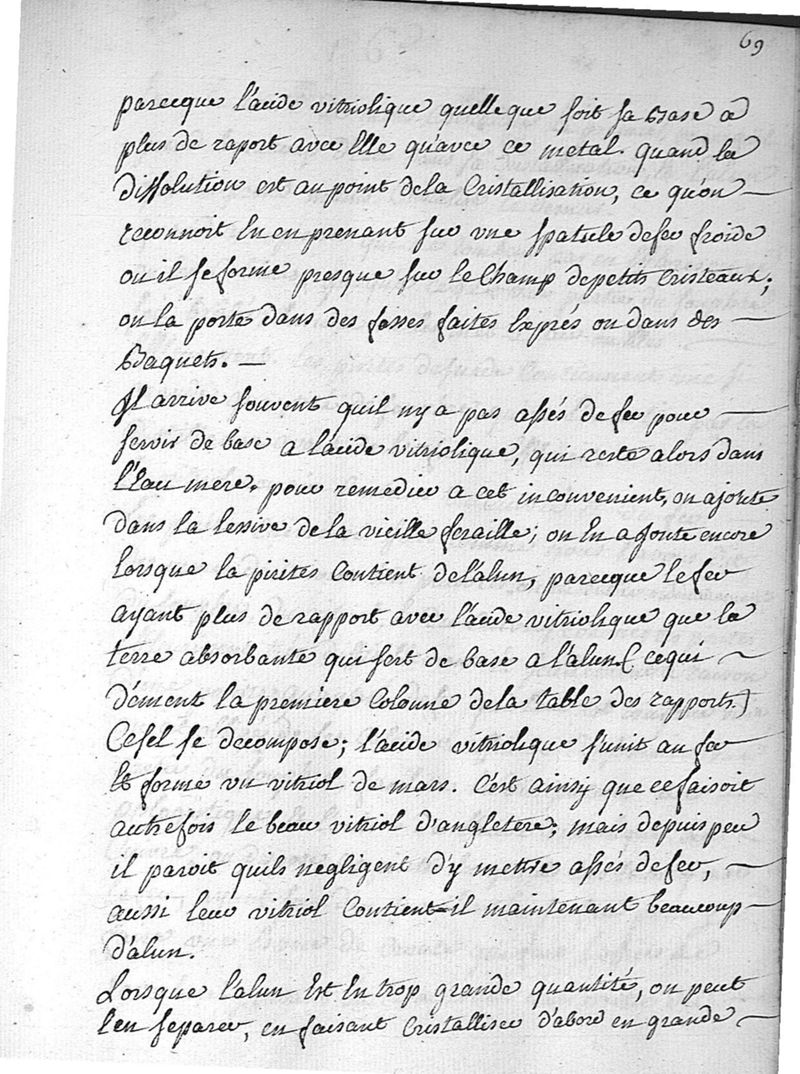 69
parceque l'acide vitriolique quelle que soit sa Base a
plus de raport avec Elle qu'avec ce metal. quand la
dissolution est au point de la Cristallisation, ce qu'on
reconnoit En en prenant sur vne spatule de fer froide
ou il se forme presque sur le Champ de petits Cristeaux;
on la porte dans des fosses faites Exprés ou dans des
Baquets.
Il arrive souvent qu'il ny a pas assés de fer pour
servir de base a l'acide vitriolique, qui reste alors dans
l'Eau mere. pour remedier a cet inconvenient, on ajoute
dans la lessive de la vieille feraille; on En ajoute encore
lorsque la pirites Contient de l'alun, parceque le fer
ayant plus de rapport avec l'acide vitriolique que la
terre absorbante qui sert de base a l'alun (ce qui
dément la premiere Colonne de la table des rapports)
Ce sel se decompose; l'acide vitriolique s'unit au fer
Et forme vn vitriol de mars. C'est ainsy que ce faisoit
autrefois le beau vitriol d'angletere; mais depuis peu
il paroit quils negligent d'y mettre assés de fer,
aussi leur vitriol Contient-il maintenant beaucoup
d'alun.
Lorsque l'alun Est En trop grande quantité, on peut
l'en separer, en faisant Cristalliser d'abord en grande